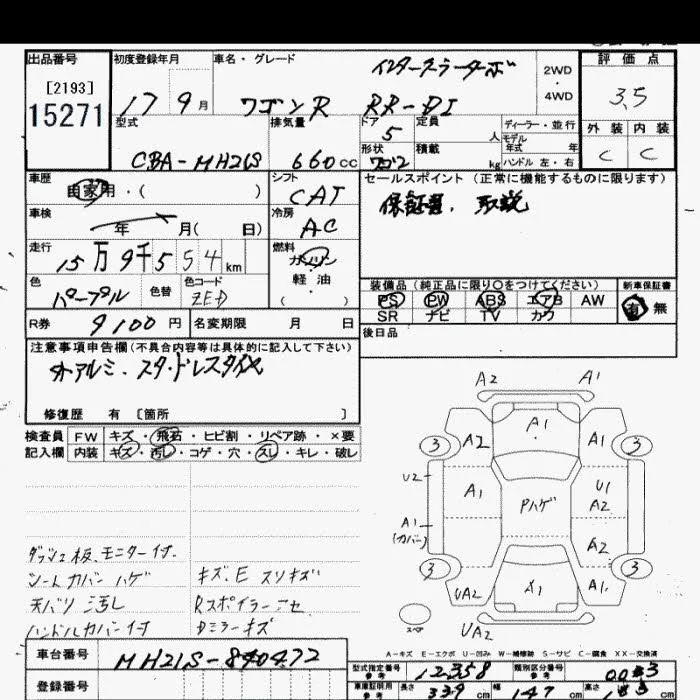 出品番号 初度登録年月 車名・グレード 評価点
[2193]
15271
17 9月
インタークーラーターボ
ワゴンR RR-DI
2WD
・
4WD
3.5
型式 排気量 ドア 定員 ディーラー・並行
CBA-MH21S 660cc 5 人 モデル年式 年
形状 積載 kg ハンドル 左・右
ワゴン
外装 内装
C C
車歴 自家用・( )
シフト CAT
セールスポイント(正常に機能するものに限ります)
保証書、取説
車検 年 月( 日)
冷房 AC
走行 15万9千554km
燃料 ガソリン
軽油
( )
色 パープル 色替 色コード ZED
装備品(純正品に限り○をつけてください) 新車保証書
PS PW ABS エアB AW 有 無
SR ナビ TV カワ
R券 9100円 名変期限 月 日
後日品
注意事項申告欄(不具合内容等は具体的に記入して下さい)
アルミ、スタッドレスタイヤ
修復歴 有 [箇所 ]
検査員 FW キズ・飛石・ヒビ割・リペア跡・×要
記入欄 内装 キズ・汚し・コゲ・穴・スレ・キレ・破レ
A2 A1
A1
3 A2 A1 3
U2 A1 Pハゲ U1
A2
A1
(カバー)
A2
3 UA2 A1 A1 3
スペア UA2
ダッシュ板、モニター付、
シートカバー ハゲ キズ、E スリキズ
天バリ 汚し Rスポイラーアセ
ハンドルカバー付 Dミラーキズ
A-キズ E-エクボ U-凹み W-補修跡 S-サビ C-腐食 XX-交換済
車台番号 MH21S-840472
型式指定番号 参考 12358 類別区分番号 参考 0033
登録番号
車庫証明用 参考 長さ 339cm 幅 147cm 高さ cm